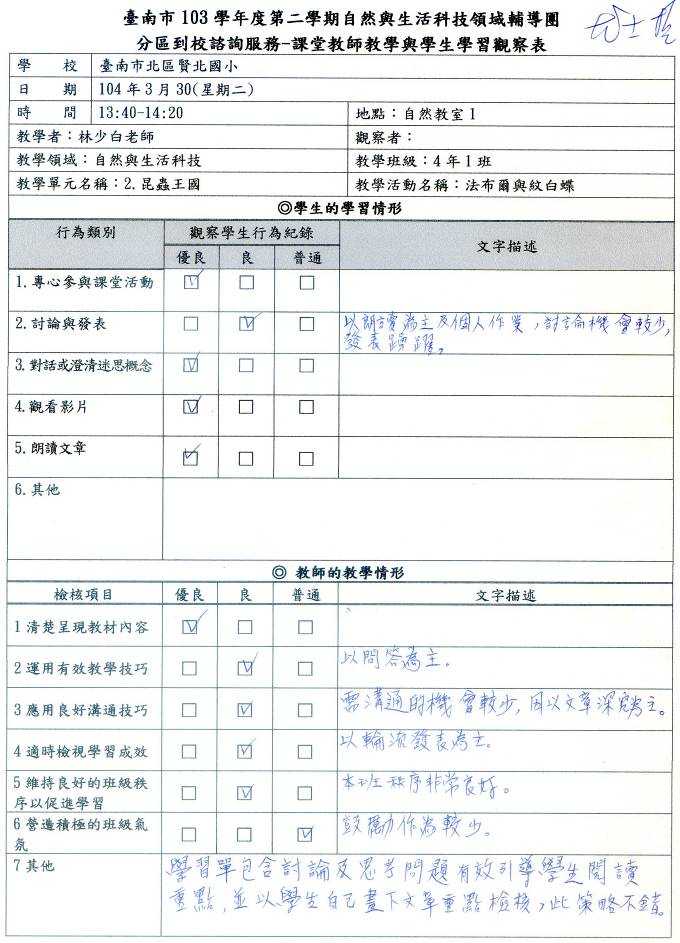 臺南市 103 學年度第二學期自然與生活科技領域輔導團
分區到校諮詢服務-課堂教師教學與學生學習觀察表
學 校 臺南市北區賢北國小
日 期 104 年 3 月 30(星期二)
時 間 13:40-14:20 地點：自然教室 I
教學者：林少白老師 觀察者：
教學領域：自然與生活科技 教學班級：4 年 1 班
教學單元名稱：2.昆蟲王國 教學活動名稱：法布爾與紋白蝶
◎學生的學習情形
行為類別 觀察學生行為紀錄 文字描述
優良 良 普通
1.專心參與課堂活動 ☑ □ □
2.討論與發表 □ ☑ □ 以朗讀為主及個人作業，討論機會較少，
發表踴躍。
3.對話或澄清迷思概念 ☑ □ □
4.觀看影片 ☑ □ □
5.朗讀文章 ☑ □ □
6.其他
◎ 教師的教學情形
檢核項目 優良 良 普通 文字描述
1 清楚呈現教材內容 ☑ □ □
2 運用有效教學技巧 □ ☑ □ 以問答為主。
3 應用良好溝通技巧 □ ☑ □ 需溝通的機會較少，因以文章深究為主。
4 適時檢視學習成效 □ ☑ □ 以輪流發表為主。
5 維持良好的班級秩 □ ☑ □ 本班秩序非常良好。
序以促進學習
6 營造積極的班級氣 □ □ ☑ 鼓勵作為較少。
氛
7 其他 學習單包含討論及思考問題有效引導學生閱讀
重點，並以學生自己畫下文章重點檢核，此策略不錯。